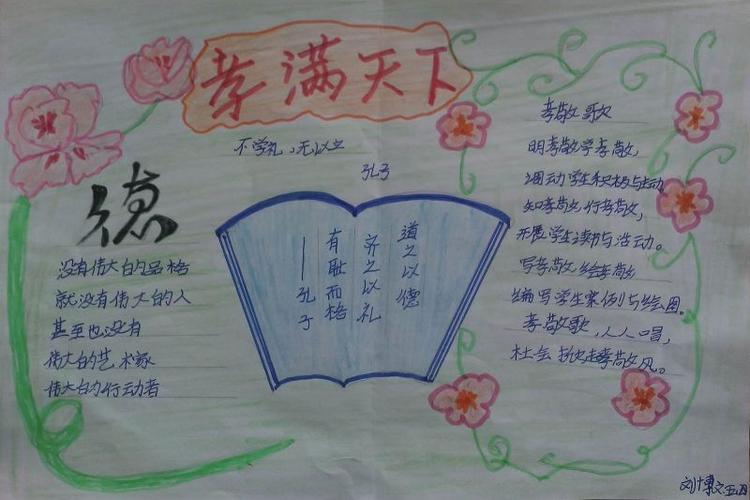 孝满天下
不学礼，无以立
孔子
德
没有伟大的品格
就没有伟大的人
甚至也没有
伟大的艺术家
伟大的行动者
道之以德
齐之以礼
有耻而格
——孔子
孝敬歌
明孝敬学孝敬，
调动学生积极与主动，
知孝敬，行孝敬，
开展学生读书与活动。
写孝敬 绘孝敬
编写学生案例与绘图。
孝敬歌，人人唱，
社会 孝敬风。
刘博文